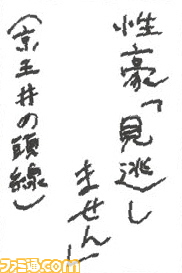 性豪「見逃し
ません」
(京王井の頭線)
ファミ通.com